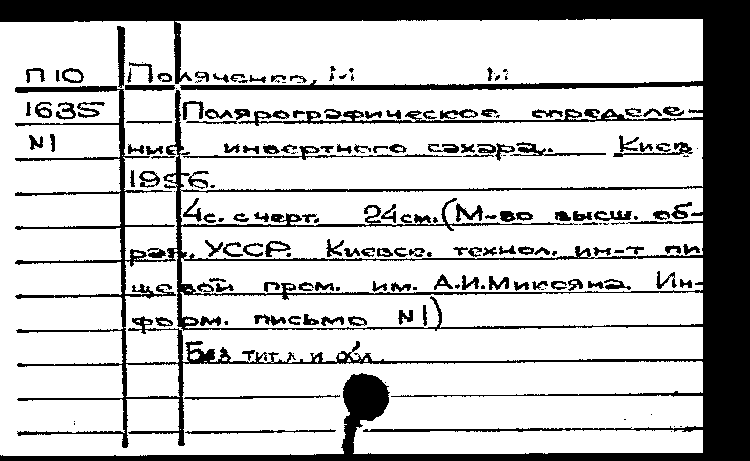 П 10 Поляченко, М М
1635 Полярографическое определе-
N1 ние инвертного сахара. Киев
1956.
4с. с черт. 24см. (М-во высш. об-
раз. УССР. Киевск. технол. ин-т пи-
щевой пром. им. А.И.Микояна. Ин-
форм. письмо N1)
Без тит.л. и обл.